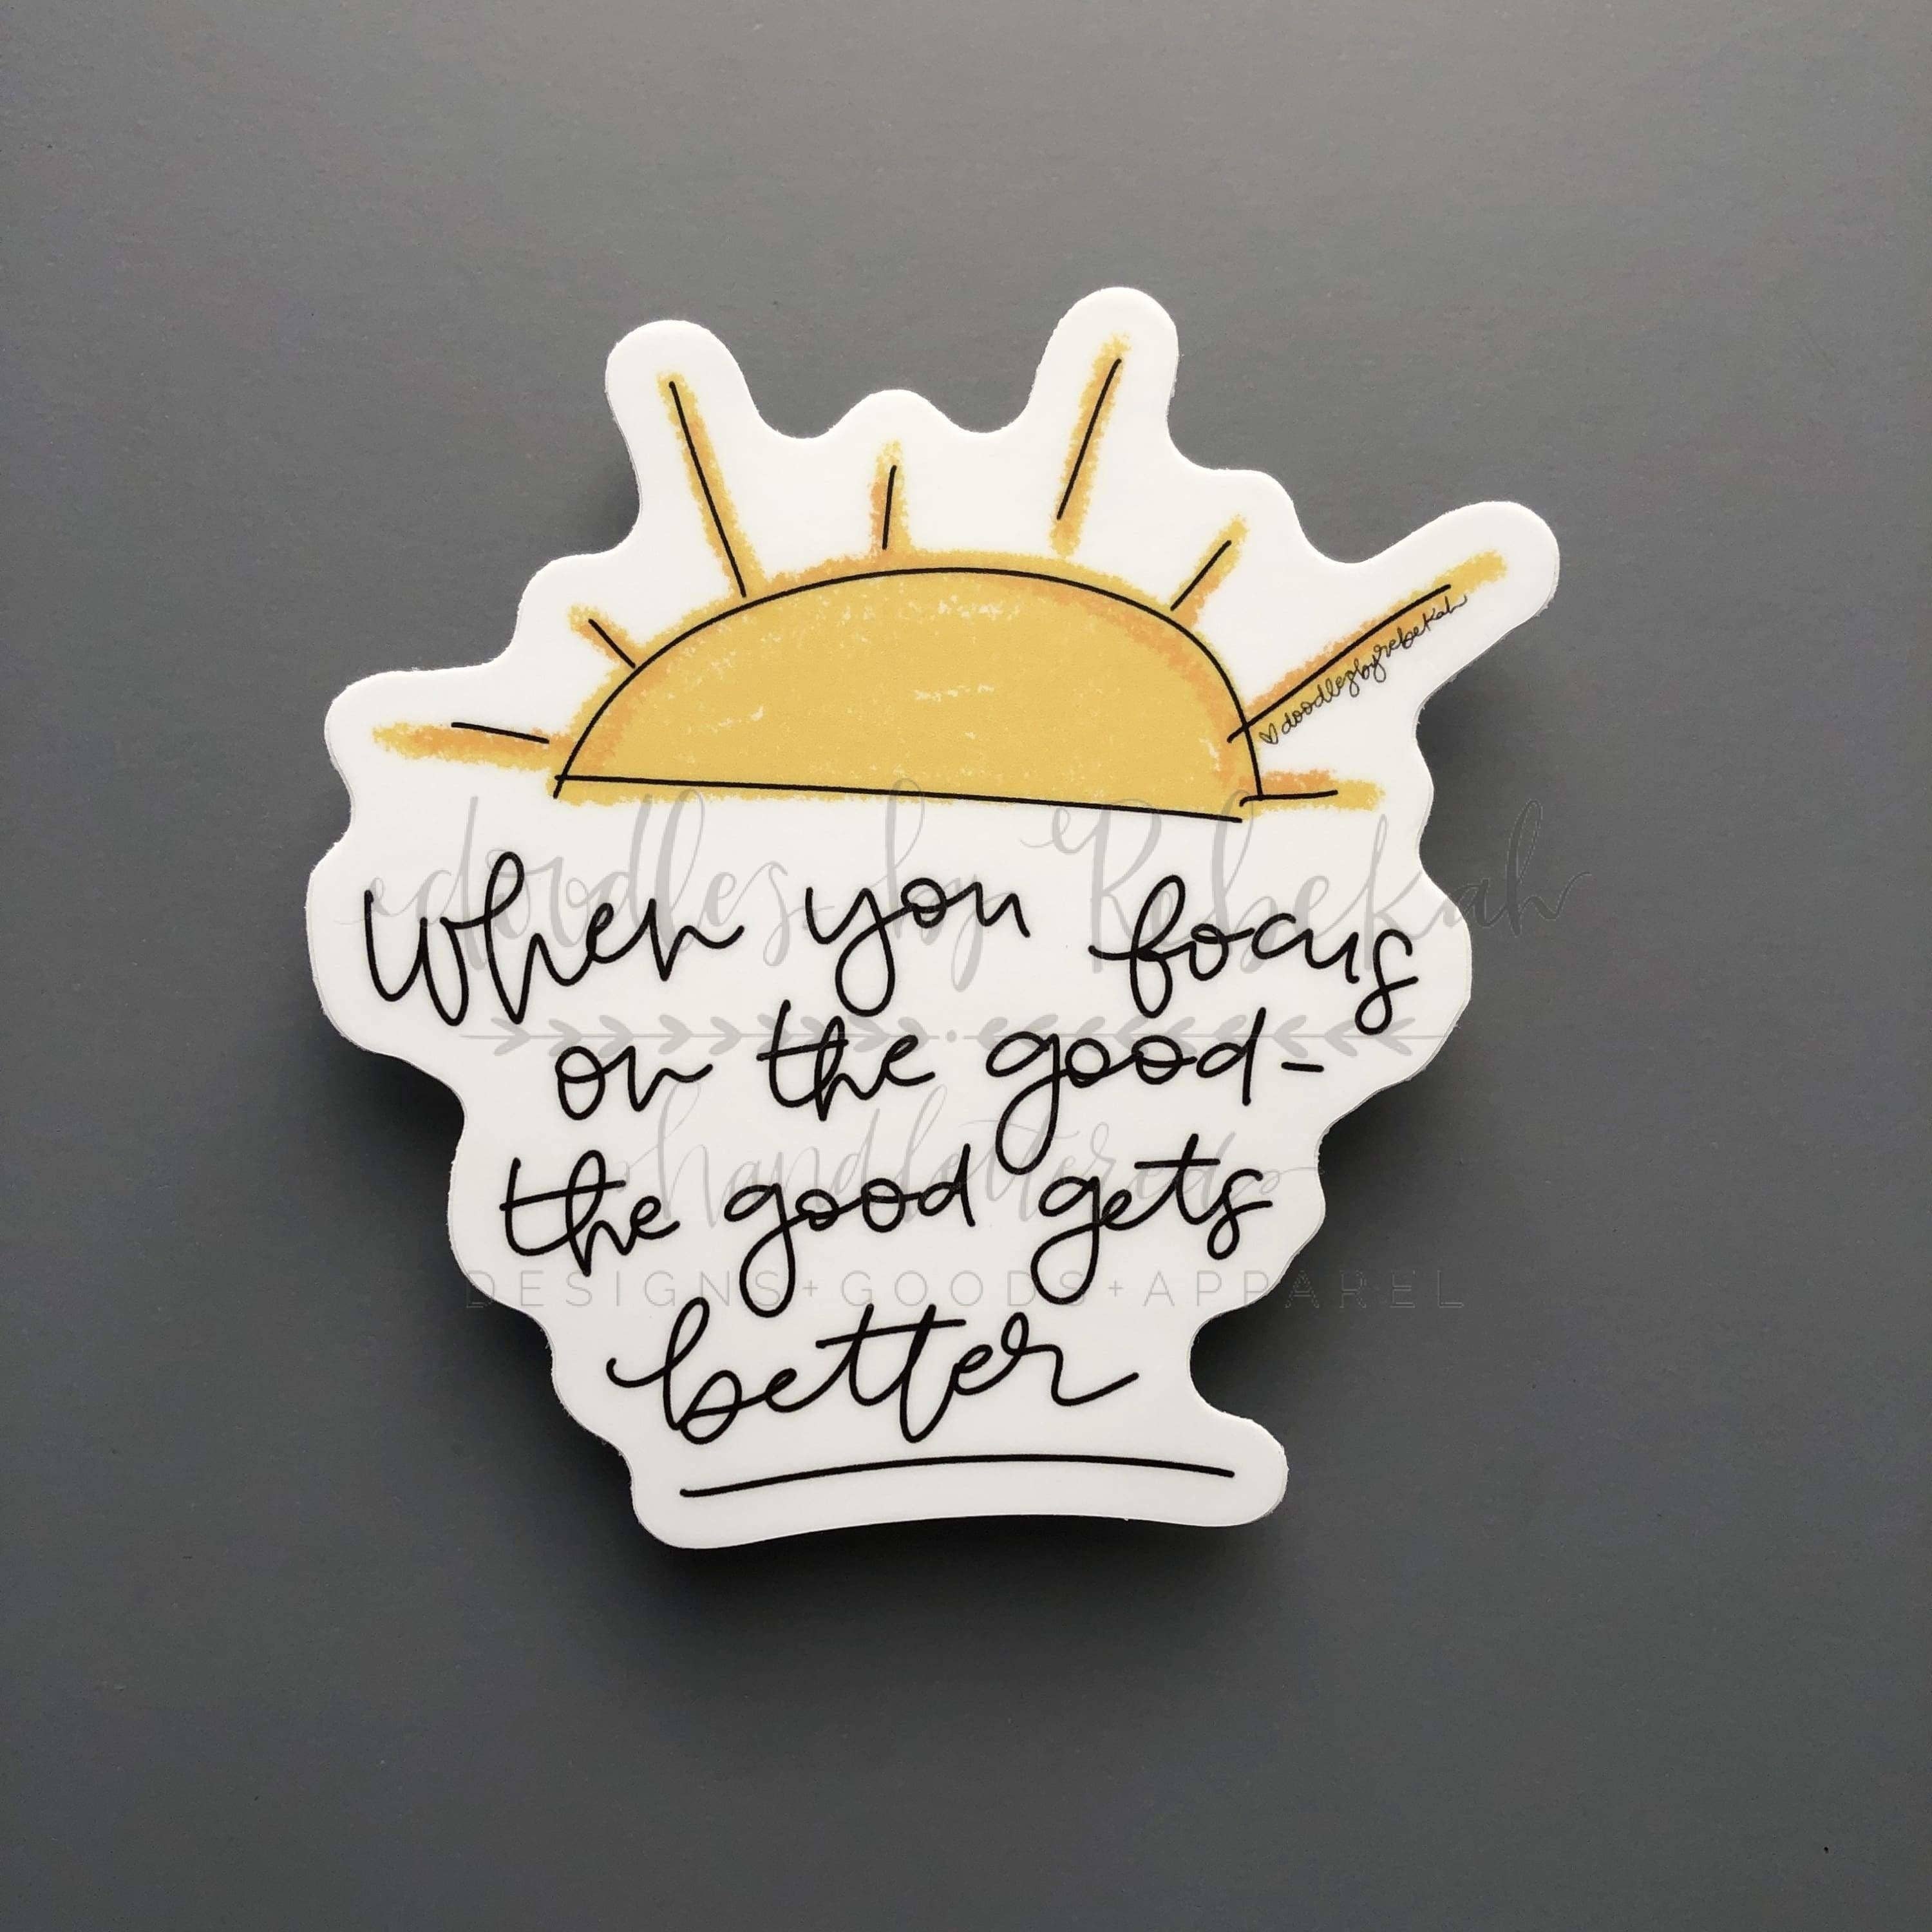 ♡doodlesbyrebekah
doodles by Rebekah
When you focus
on the good-
handlettered
the good gets
DESIGNS+GOODS+APPAREL
better